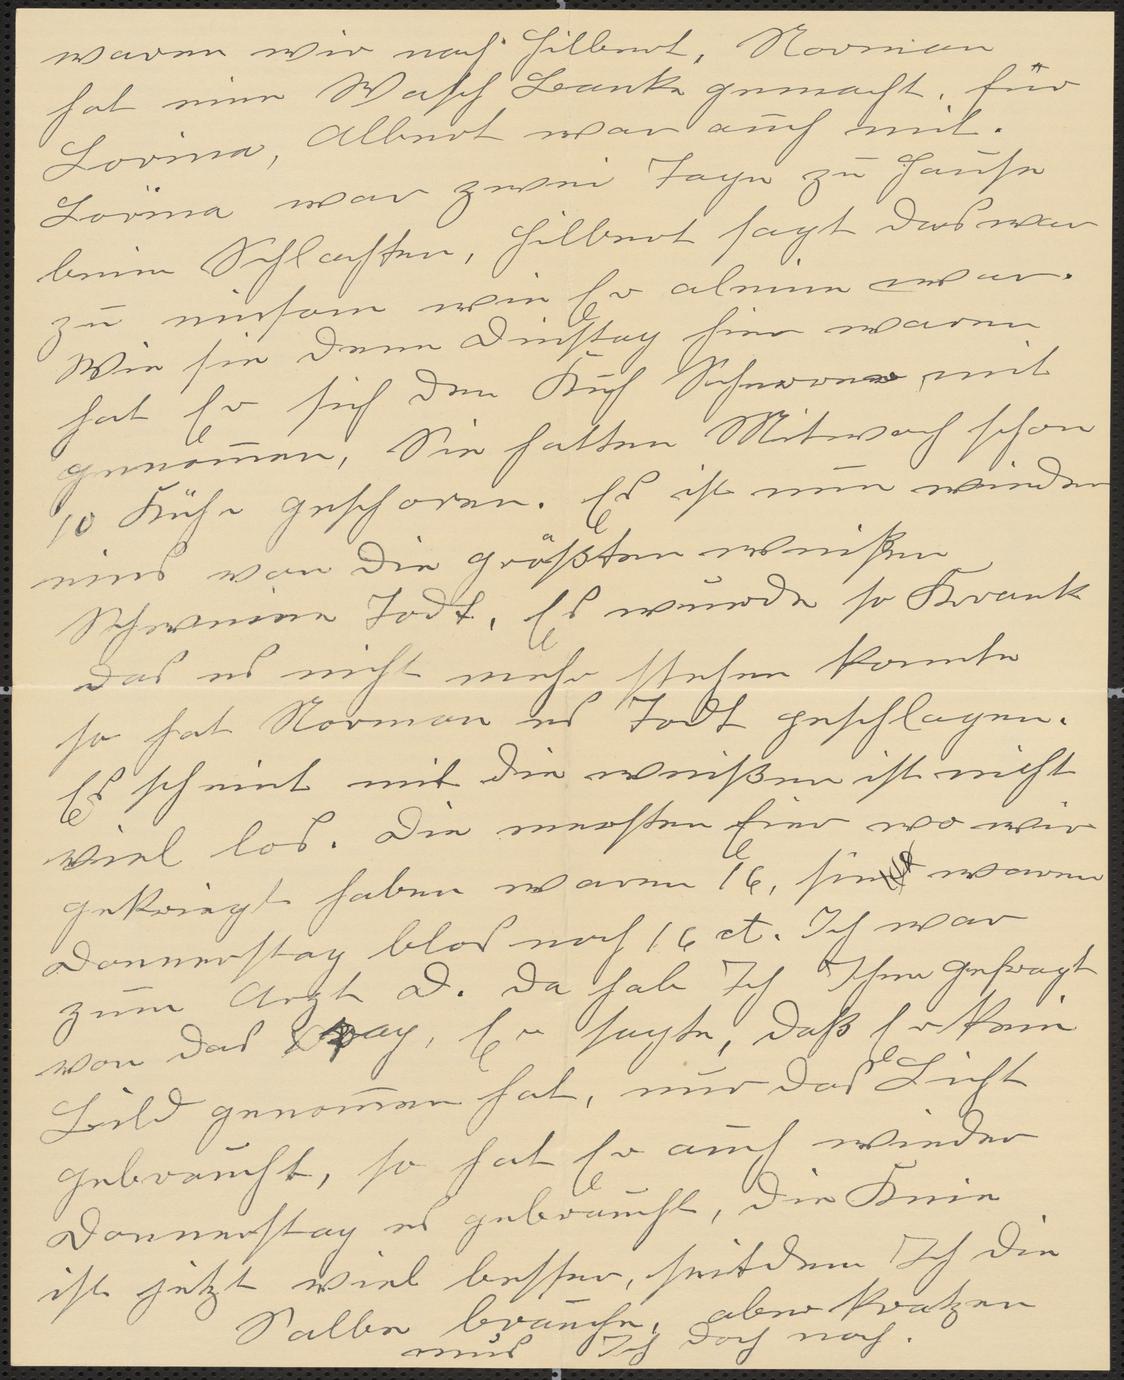 waren wir nach Hilbert, Norman
hat eine Wasch Banke gemacht, für
Lorina, Albert war auch mit.
Lorina war zwei Tage zu Hause
beim Schlachten, Hilbert sagt das war
zu einsam wie Er aleine war.
Wie sie denn Dinstag hier waren
hat Er sich den Kuh Scherer mit
genom̄en, Sie hatten Mitwoch schon
10 Kühe geschoren. Es ist nun wieder
eins von die größten weißen
Schweine Todt, Es wurde so Krank
das es nicht mehr stehen konnte
so hat Norman es Todt geschlagen.
Es scheint mit die weißen ist nicht
viel los. Die mersten Eier wo wir
gekriegt haben waren 16, sind waren
Donnerstag blos noch 16 ct. Ich war
zum Arzt D. da hab Ich Ihm gefragt
von das Xray, Er sagte, daß Er kein
Bild genom̄en hat, nur das Licht
gebraucht, so hat Er auch wieder
Donnerstag es gebraucht, die Knie
ist jetzt viel besser, seitdem Ich die
Salbe brauche, aber kratzen
mus Ich doch noch.